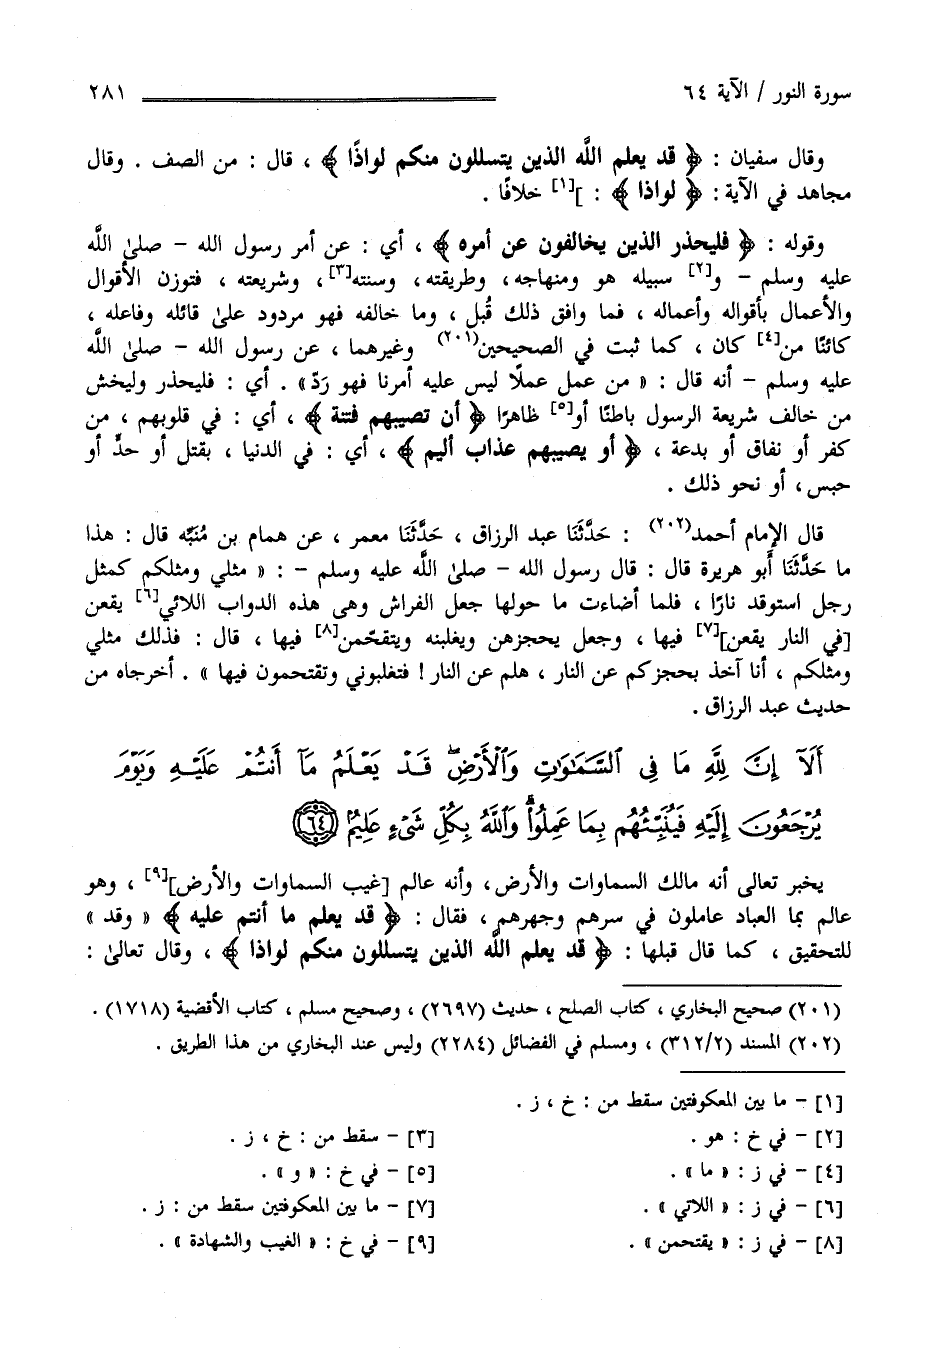 سورة النور / الآية ٦٤ ٢٨١
وقال سفيان : ﴿ قد يعلم اللَّه الذين يتسللون منكم لواذًا ﴾ ، قال : من الصف . وقال
مجاهد في الآية : ﴿ لواذا ﴾ : ][١] خلافًا .
وقوله : ﴿ فليحذر الذين يخالفون عن أمره ﴾ ، أي : عن أمر رسول الله - صلىٰ اللَّه
عليه وسلم - و[٢] سبيله هو ومنهاجه ، وطريقته ، وسنته[٣] ، وشريعته ، فتوزن الأقوال
والأعمال بأقواله وأعماله ، فما وافق ذلك قُبل ، وما خالفه فهو مردود علىٰ قائله وفاعله ،
كائنًا من[٤] كان ، كما ثبت في الصحيحين(٢٠١) وغيرهما ، عن رسول الله - صلىٰ اللَّه
عليه وسلم - أنه قال : « من عمل عملًا ليس عليه أمرنا فهو رَدّ» . أي : فليحذر وليخش
من خالف شريعة الرسول باطنًا أو[٥] ظاهرًا ﴿ أن تصيبهم فتنة ﴾ ، أي : في قلوبهم ، من
كفر أو نفاق أو بدعة ، ﴿ أو يصيبهم عذاب أليم ﴾ ، أي : في الدنيا ، بقتل أو حدٍّ أو
حبس ، أو نحو ذلك .
قال الإمام أحمد(٢٠٢) : حَدَّثَنَا عبد الرزاق ، حَدَّثَنَا معمر ، عن همام بن مُنَبِّه قال : هذا
ما حَدَّثَنَا أبو هريرة قال : قال رسول الله - صلىٰ اللَّه عليه وسلم - : « مثلي ومثلكم كمثل
رجل استوقد نارًا ، فلما أضاءت ما حولها جعل الفراش وهى هذه الدواب اللائي[٦] يقعن
[في النار يقعن][٧] فيها ، وجعل يحجزهن ويغلبنه ويتقحّمن[٨] فيها ، قال : فذلك مثلي
ومثلكم ، أنا آخذ بحجزكم عن النار ، هلم عن النار ! فتغلبوني وتقتحمون فيها » . أخرجاه من
حديث عبد الرزاق .
أَلَآ إِنَّ لِلَّهِ مَا فِى ٱلسَّمَٰوَٰتِ وَٱلْأَرْضِۖ قَدْ يَعْلَمُ مَآ أَنتُمْ عَلَيْهِ وَيَوْمَ
يُرْجَعُونَ إِلَيْهِ فَيُنَبِّئُهُم بِمَا عَمِلُوا۟ۗ وَٱللَّهُ بِكُلِّ شَىْءٍ عَلِيمٌۢ ٦٤
يخبر تعالى أنه مالك السماوات والأرض ، وأنه عالم [غيب السماوات والأرض][٩] ، وهو
عالم بما العباد عاملون في سرهم وجهرهم ، فقال : ﴿ قد يعلم ما أنتم عليه ﴾ « وقد »
للتحقيق ، كما قال قبلها : ﴿ قد يعلم اللَّه الذين يتسللون منكم لواذا ﴾ ، وقال تعالىٰ :
(٢٠١) صحيح البخاري ، كتاب الصلح ، حديث (٢٦٩٧) ، وصحيح مسلم ، كتاب الأقضية (١٧١٨) .
(٢٠٢) المسند (٣١٢/٢) ، ومسلم في الفضائل (٢٢٨٤) وليس عند البخاري من هذا الطريق .
[١] - ما بين المعكوفتين سقط من : خ ، ز .
[٢] - في خ : هو . [٣] - سقط من : خ ، ز .
[٤] - في ز : « ما» . [٥] - في خ : « و » .
[٦] - في ز : « اللاتي » . [٧] - ما بين المعكوفتين سقط من : ز .
[٨] - في ز : « يقتحمن » . [٩] - في خ : « الغيب والشهادة » .